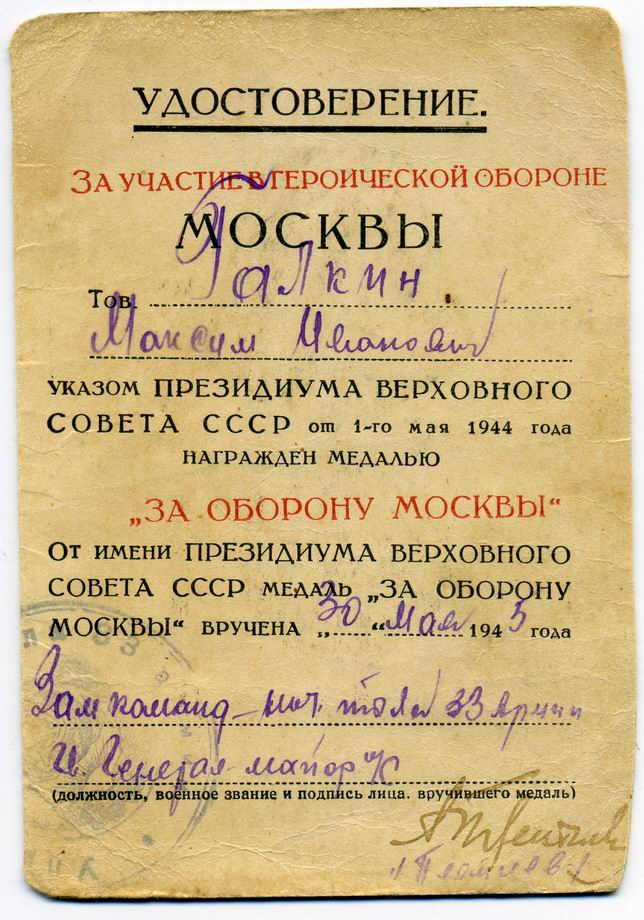 УДОСТОВЕРЕНИЕ.
ЗА УЧАСТИЕ В ГЕРОИЧЕСКОЙ ОБОРОНЕ
МОСКВЫ
Тов. Галкин
Максим Иванович
УКАЗОМ ПРЕЗИДИУМА ВЕРХОВНОГО
СОВЕТА СССР от 1-го мая 1944 года
НАГРАЖДЕН МЕДАЛЬЮ
„ЗА ОБОРОНУ МОСКВЫ“
ОТ ИМЕНИ ПРЕЗИДИУМА ВЕРХОВНОГО
СОВЕТА СССР МЕДАЛЬ „ЗА ОБОРОНУ
МОСКВЫ“ ВРУЧЕНА „30“ Мая 1945 года
Зам команд 33 Армии
Генерал-майор
(должность, военное звание и подпись лица. вручившего медаль)